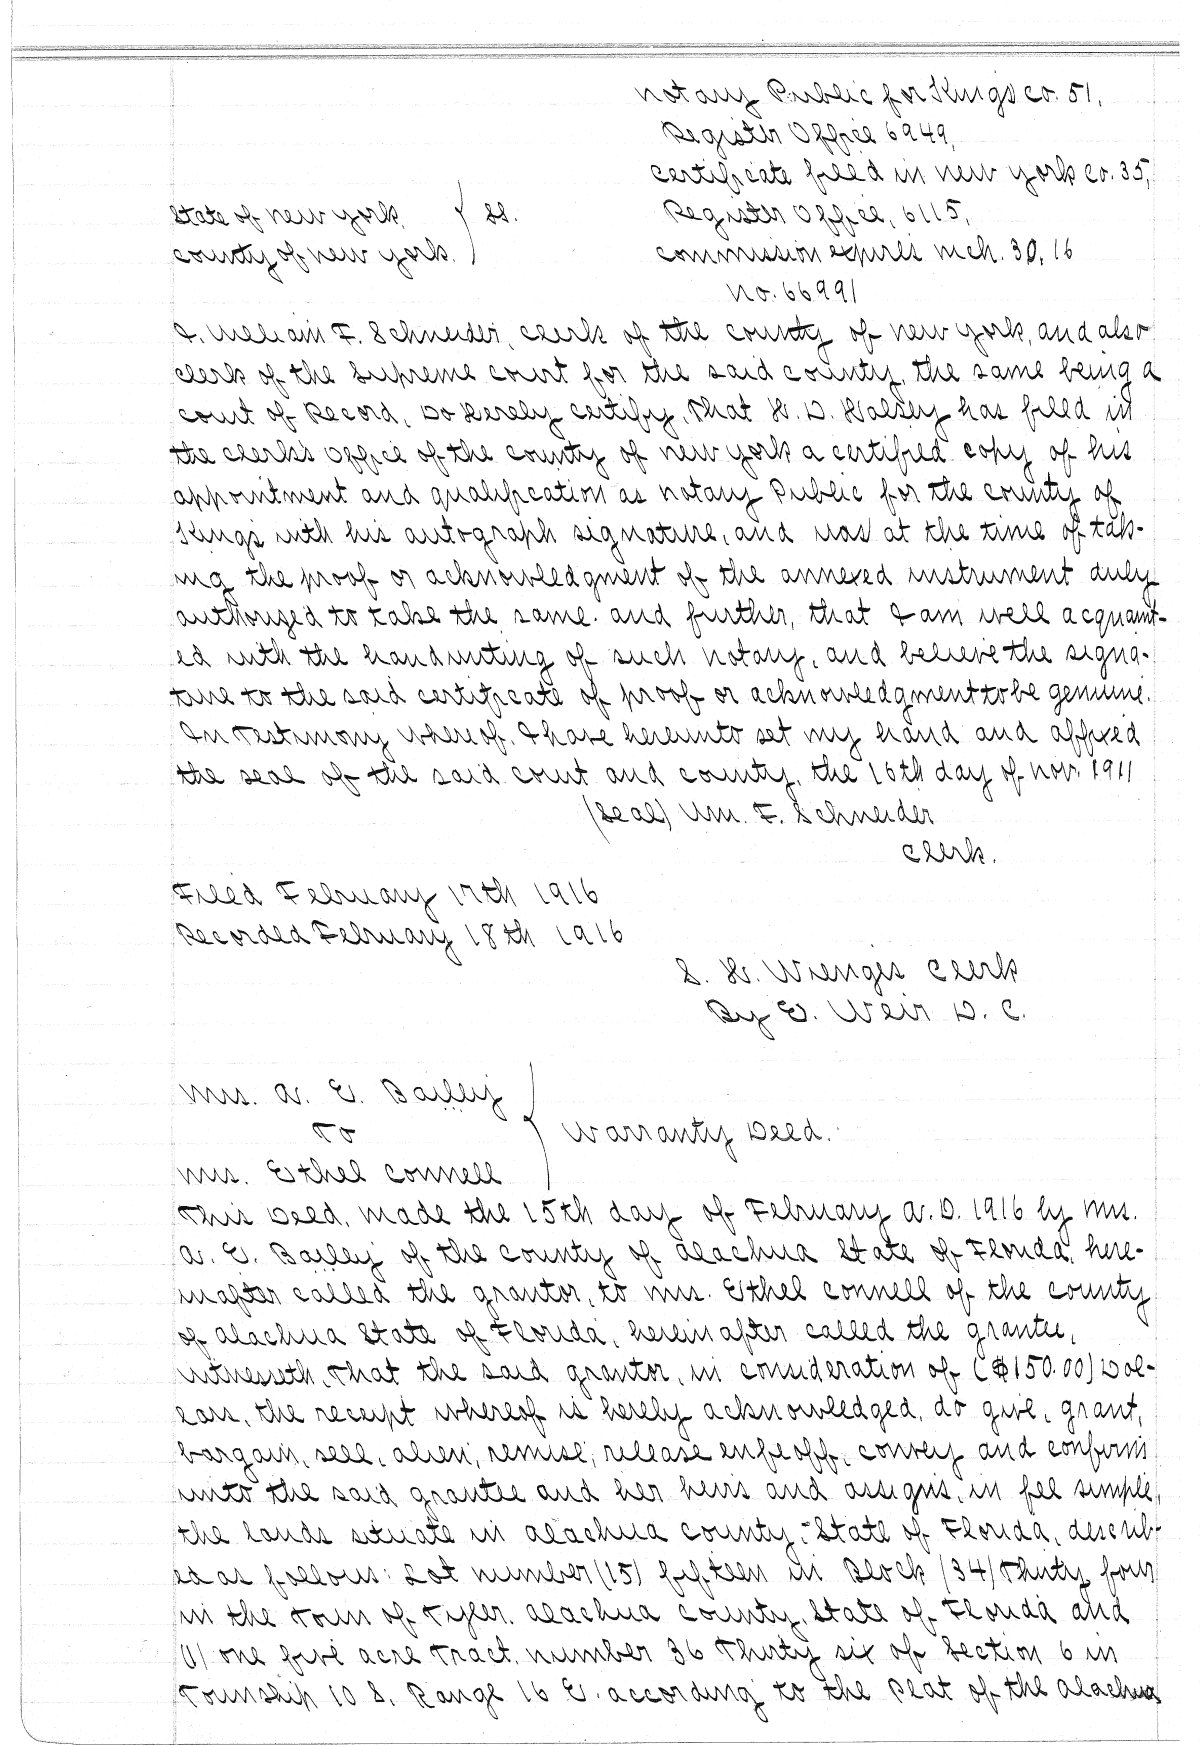 Notary Public for Kings Co. 51,
Register Office 6949,
Certificate filed in New York Co. 35,
State of New York } ss. Register Office, 6115,
County of New York. Commission expires Mch. 30, 16
No. 66991
I, William F. Schneider, Clerk of the County of New York, and also
Clerk of the Supreme Court for the said County, the same being a
Court of Record, Do Hereby Certify, That H. D. Halsey has filed in
the Clerk's Office of the County of New York a certified copy of his
appointment and qualification as Notary Public for the County of
Kings with his autograph signature, and was at the time of tak-
ing the proof or acknowledgment of the annexed instrument duly
authorized to take the same. And further, that I am well acquaint-
ed with the handwriting of such Notary, and believe the signa-
ture to the said certificate of proof or acknowledgment to be genuine.
In Testimony Whereof, I have hereunto set my hand and affixed
the seal of the said Court and County, the 16th day of Nov. 1911
(Seal) Wm. F. Schneider
Clerk.
Filed February 17th 1916
Recorded February 18th 1916
S. H. Wienges Clerk
By E. Weir D. C.
Mrs. A. E. Bailey
To } Warranty Deed.
Mrs. Ethel Connell
This Deed, made the 15th day of February A. D. 1916 by Mrs.
A. E. Bailey of the County of Alachua State of Florida, here-
inafter called the grantor, to Mrs. Ethel Connell of the County
of Alachua State of Florida, hereinafter called the grantee,
Witnesseth, That the said grantor, in consideration of ($150.00) Dol-
lars, the receipt whereof is hereby acknowledged, do give, grant,
bargain, sell, alien, remise, release enfeoff, convey and confirm
unto the said grantee and her heirs and assigns, in fee simple,
the lands situate in Alachua County, State of Florida, describ-
ed as follows: Lot number (15) fifteen in Block (34) Thirty four
in the Town of Tyler. Alachua County, State of Florida and
(1) one five acre Tract, number 36 Thirty six of Section 6 in
Township 10 S, Range 16 E. according to the Plat of the Alachua